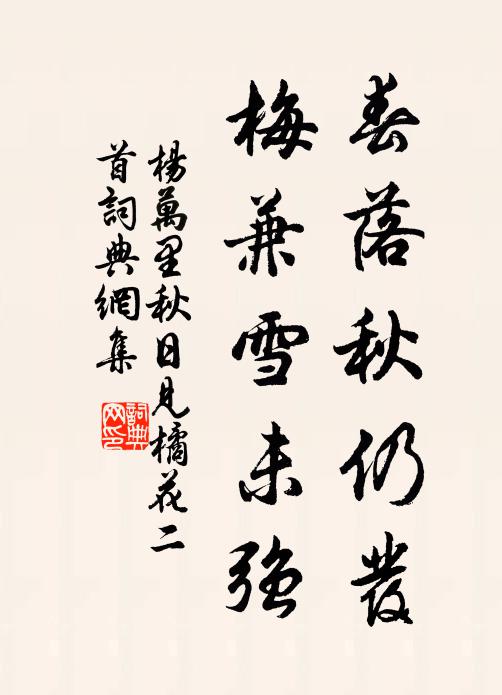 春落秋仍發
梅兼雪未強
楊萬里秋日見橘花二
首詞典網集
詞典
网印